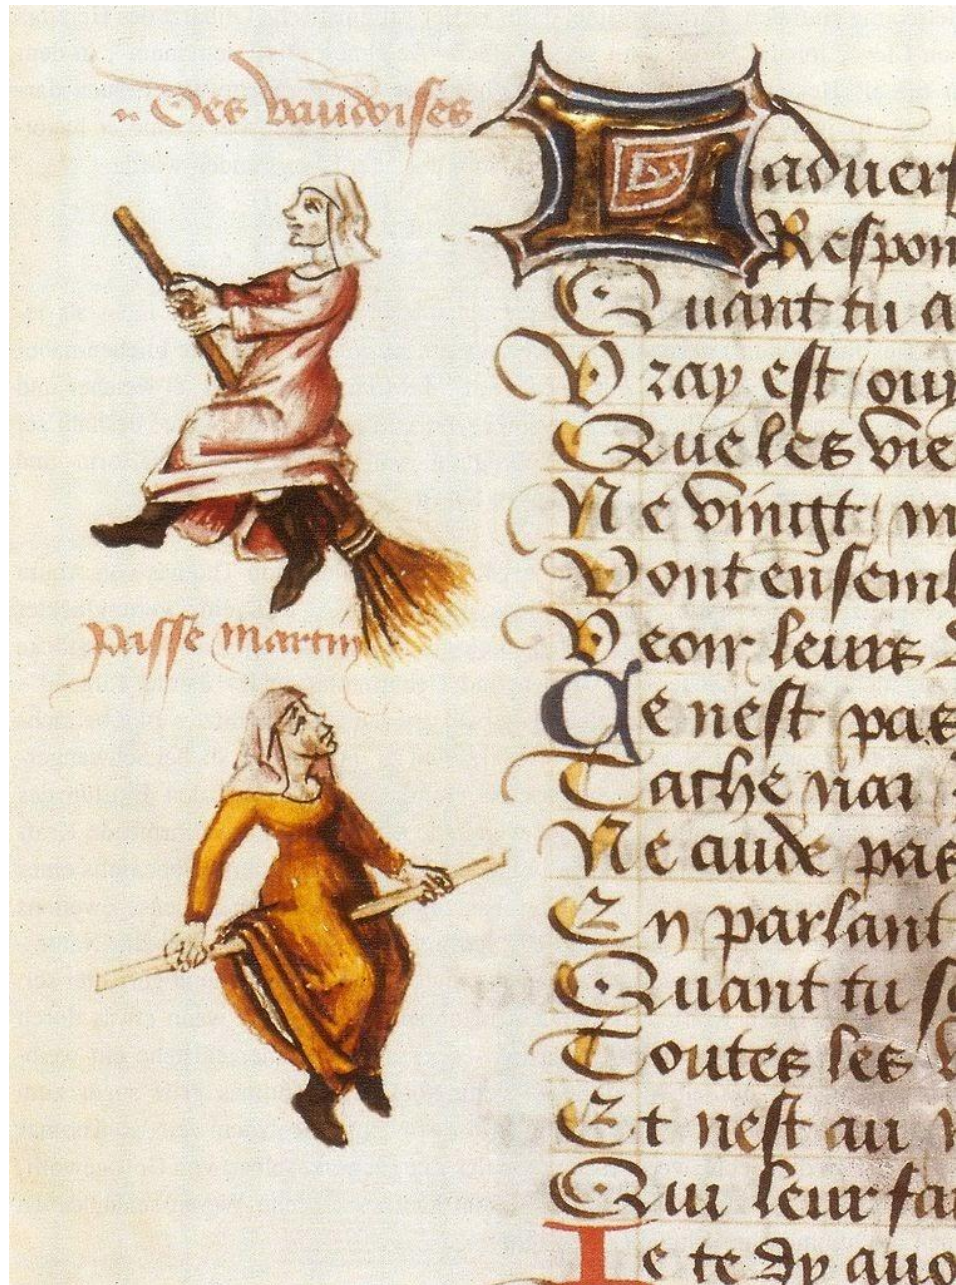 Des vaudoises
passe martin
Laduers
Respon
Quant tu a
Vray est ouy
Que les vie
Ne vingt m
Vont ensembl
Veoir leurs
Ce nest pas
Tache nar
Ne cuide pas
En parlant
Quant tu so
Toutes les v
Et nest au
Qui leur fai
Je te dy quo